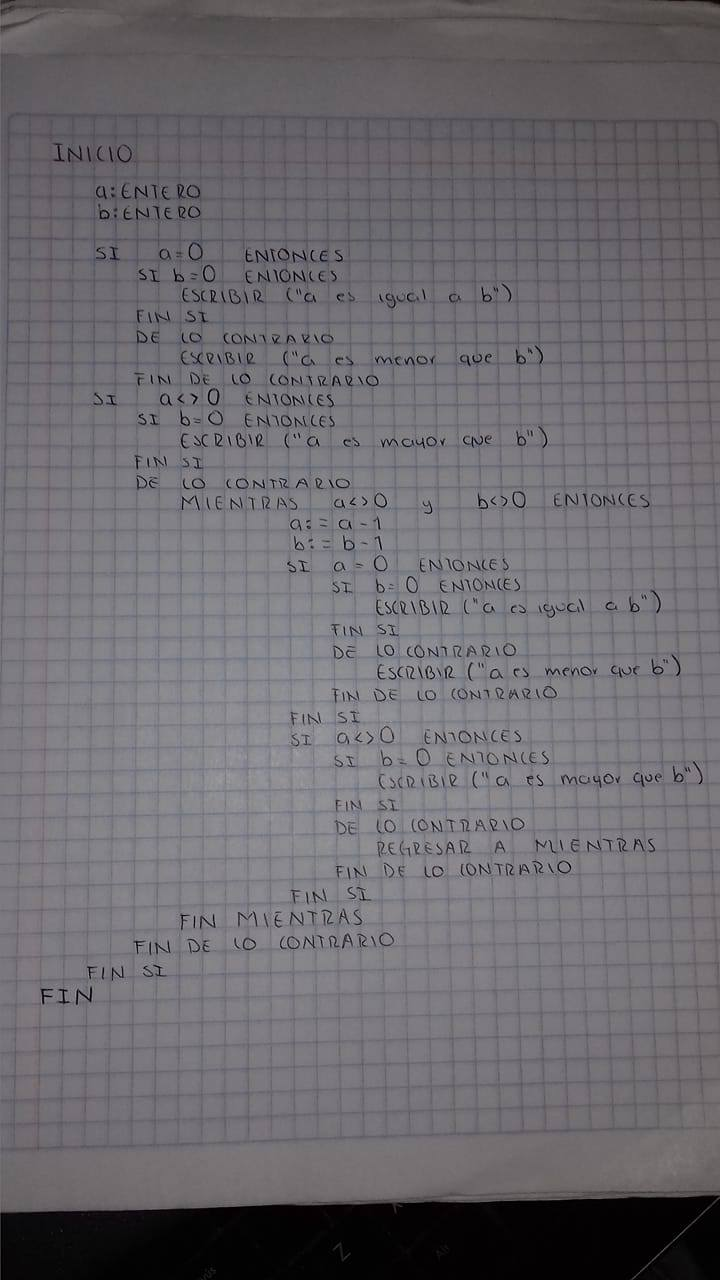 INICIO
a: ENTERO
b: ENTERO
SI a=0 ENTONCES
SI b=0 ENTONCES
ESCRIBIR ("a es igual a b")
FIN SI
DE LO CONTRARIO
ESCRIBIR ("a es menor que b")
FIN DE LO CONTRARIO
SI a<>0 ENTONCES
SI b=0 ENTONCES
ESCRIBIR ("a es mayor que b")
FIN SI
DE LO CONTRARIO
MIENTRAS a<>0 y b<>0 ENTONCES
a:= a-1
b:= b-1
SI a=0 ENTONCES
SI b=0 ENTONCES
ESCRIBIR ("a es igual a b")
FIN SI
DE LO CONTRARIO
ESCRIBIR ("a es menor que b")
FIN DE LO CONTRARIO
FIN SI
SI a<>0 ENTONCES
SI b=0 ENTONCES
ESCRIBIR ("a es mayor que b")
FIN SI
DE LO CONTRARIO
REGRESAR A MIENTRAS
FIN DE LO CONTRARIO
FIN SI
FIN MIENTRAS
FIN DE LO CONTRARIO
FIN SI
FIN
Z
Alt